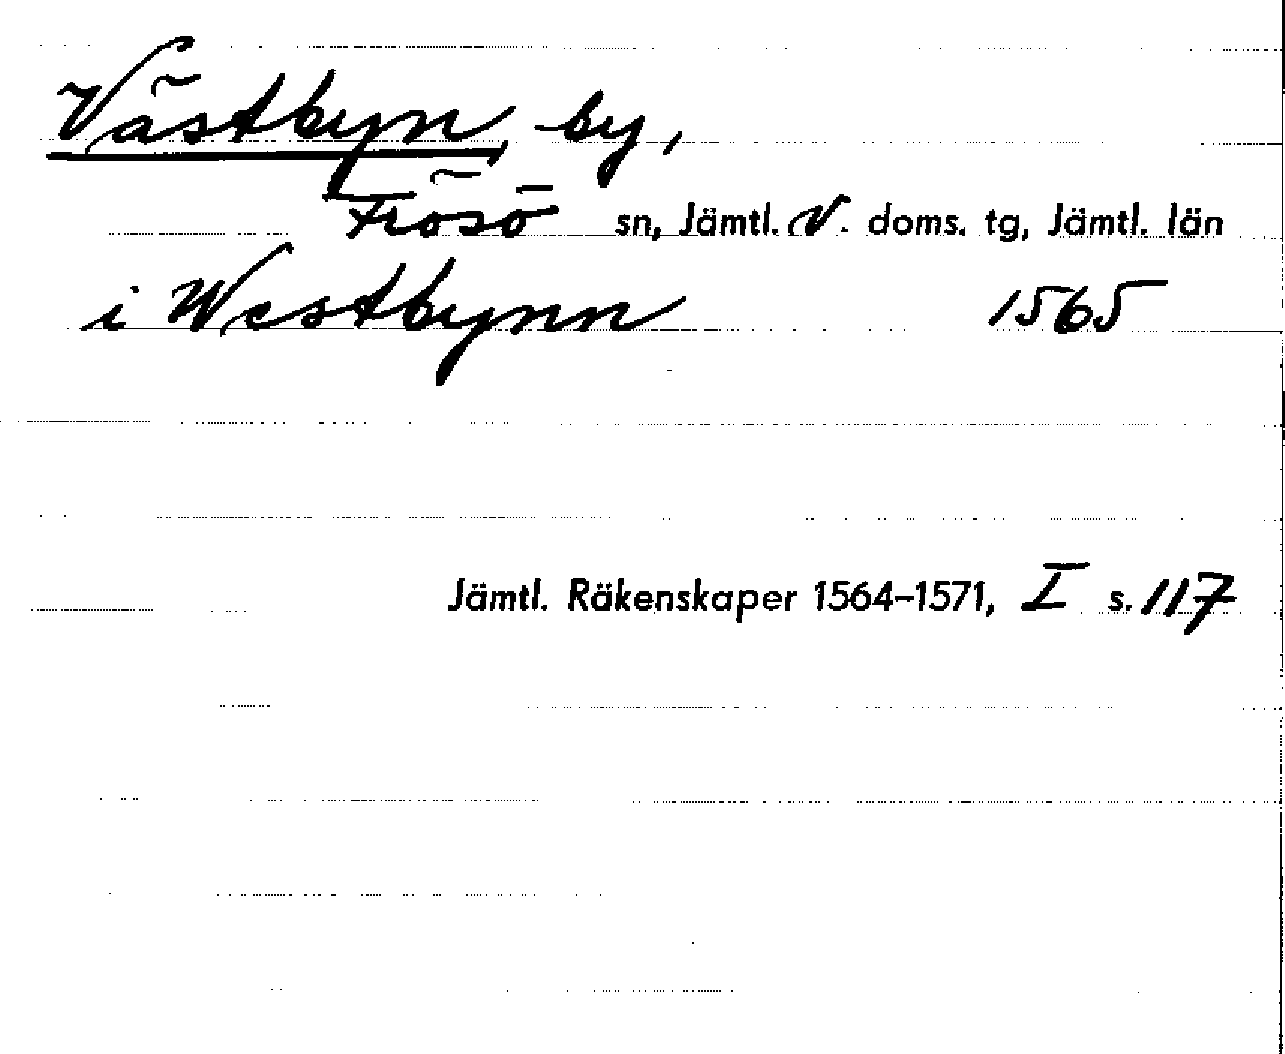 Västbyn, by,
Frösö sn, Jämtl. V. doms. tg, Jämtl. län
i Westbynn 1565
Jämtl. Räkenskaper 1564–1571, I s. 117